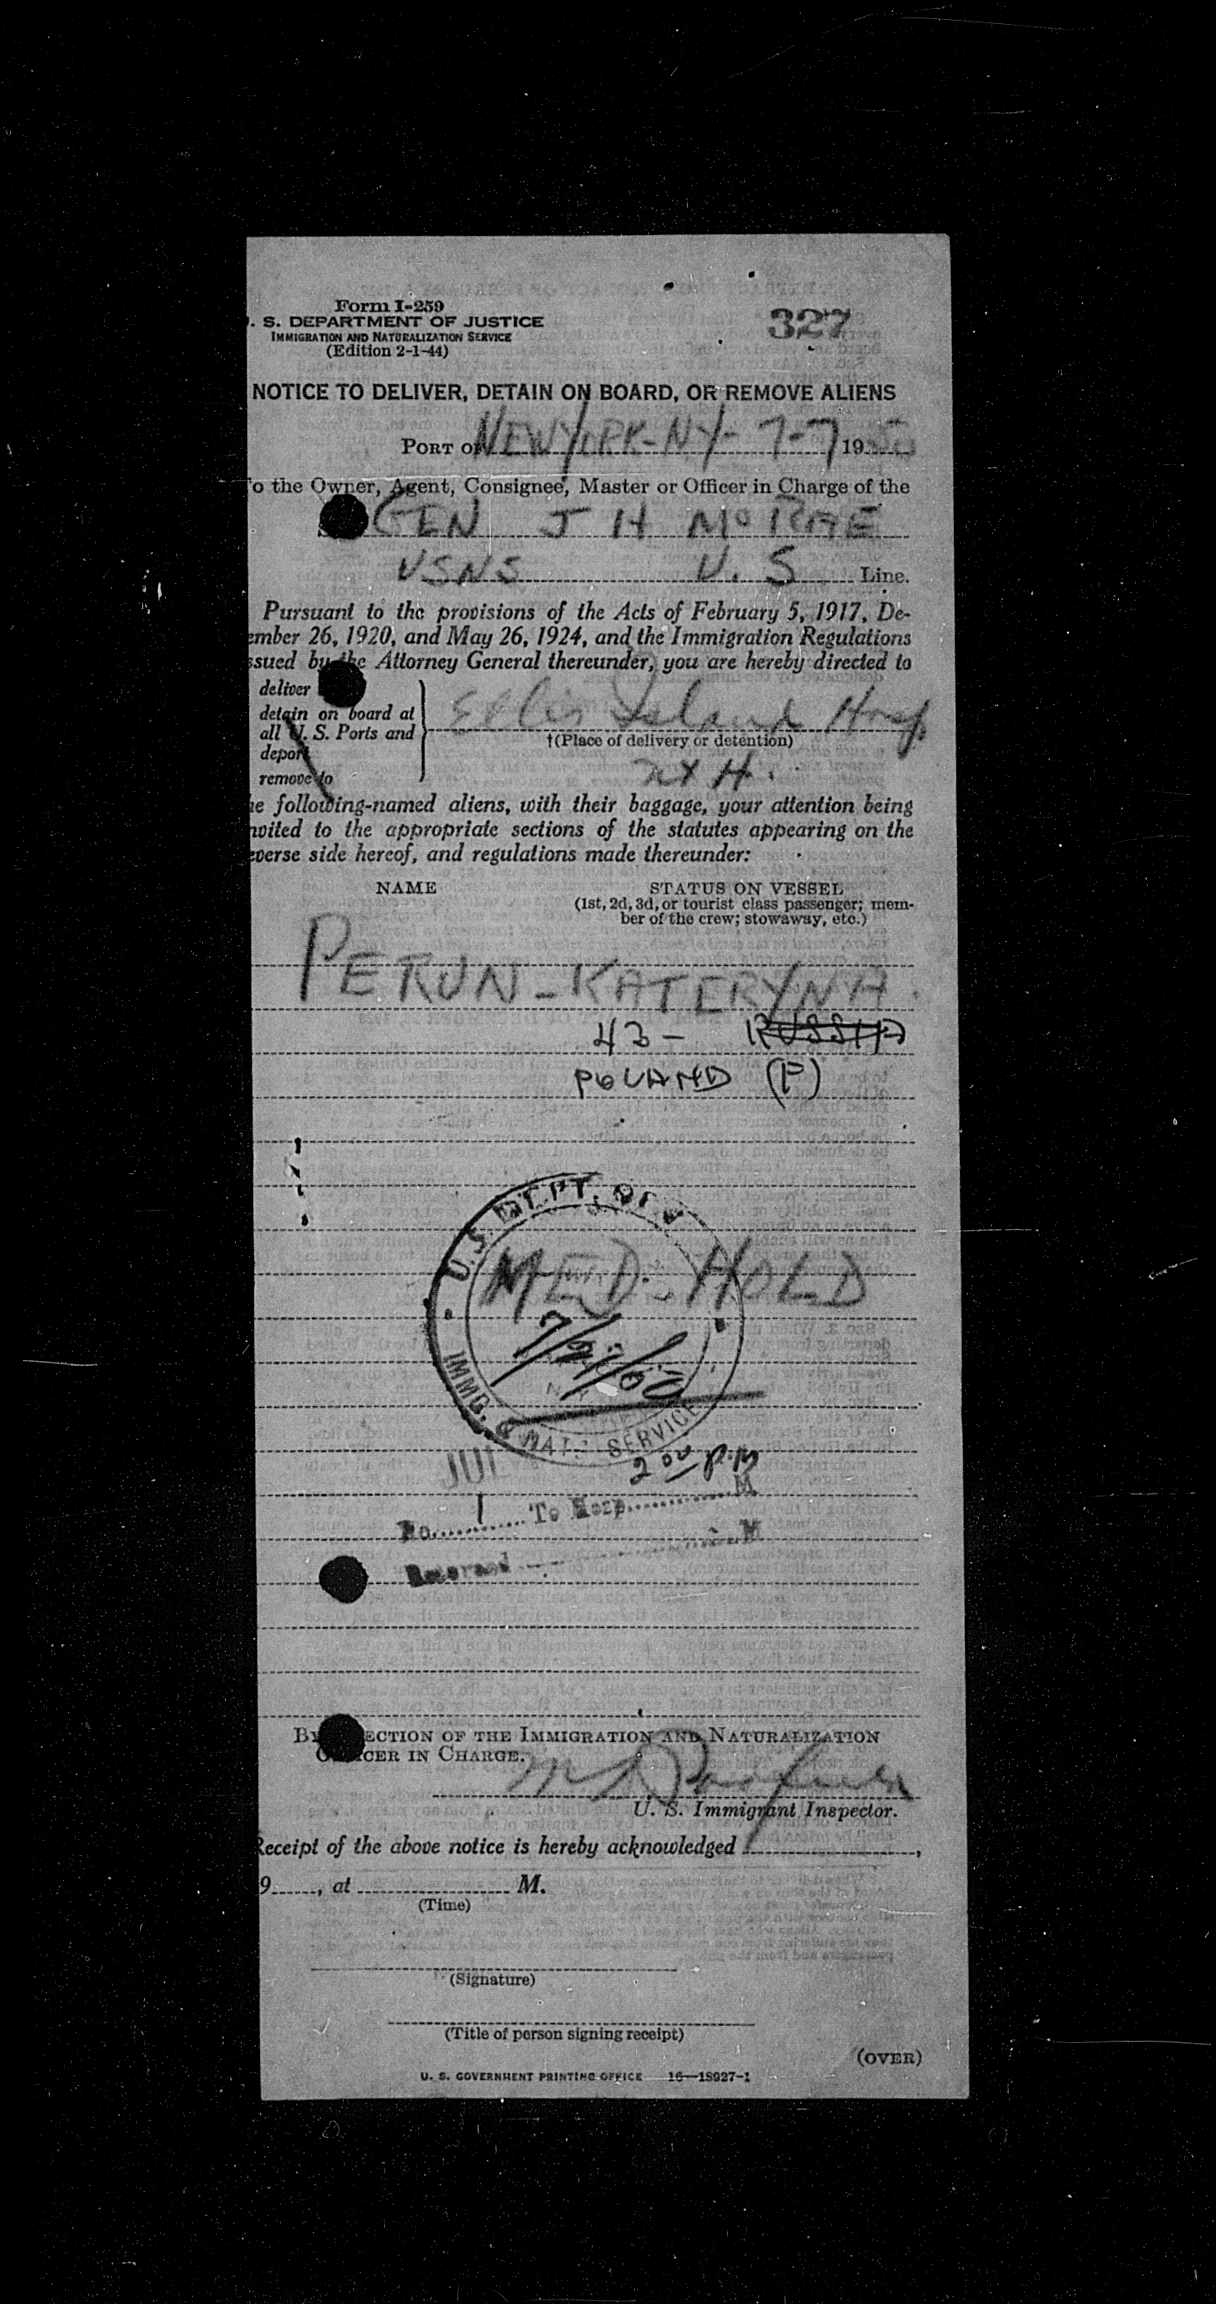 Form I-259
. S. DEPARTMENT OF JUSTICE
327
IMMIGRATION AND NATURALIZATION SERVICE
(Edition 2-1-44)
NOTICE TO DELIVER, DETAIN ON BOARD, OR REMOVE ALIENS
PORT OF NEW YORK-NY- 7-7 1950
o the Owner, Agent, Consignee, Master or Officer in Charge of the
GEN J H McRAE
USNS U. S. Line.
Pursuant to the provisions of the Acts of February 5, 1917, De-
ember 26, 1920, and May 26, 1924, and the Immigration Regulations
ssued by the Attorney General thereunder, you are hereby directed to
deliver
detain on board at
all U. S. Ports and
deport
remove to
Ellis Island Hosp
†(Place of delivery or detention)
he following-named aliens, with their baggage, your attention being
nvited to the appropriate sections of the statutes appearing on the
everse side hereof, and regulations made thereunder:
NAME STATUS ON VESSEL
(1st, 2d, 3d, or tourist class passenger; mem-
ber of the crew; stowaway, etc.)
PERUN - KATERYNA.
43- RUSSIA
POLAND (P)
U.S. DEPT. OF J
MED. HOLD
IMMG. & NAT. SERVICE
JUL
2 00 P.M
No. 1 To Hosp. M
M
BY DIRECTION OF THE IMMIGRATION AND NATURALIZATION
OFFICER IN CHARGE.
U. S. Immigrant Inspector.
Receipt of the above notice is hereby acknowledged ,
9 , at M.
(Time)
(Signature)
(Title of person signing receipt)
(OVER)
U. S. GOVERNMENT PRINTING OFFICE 16—18927-1